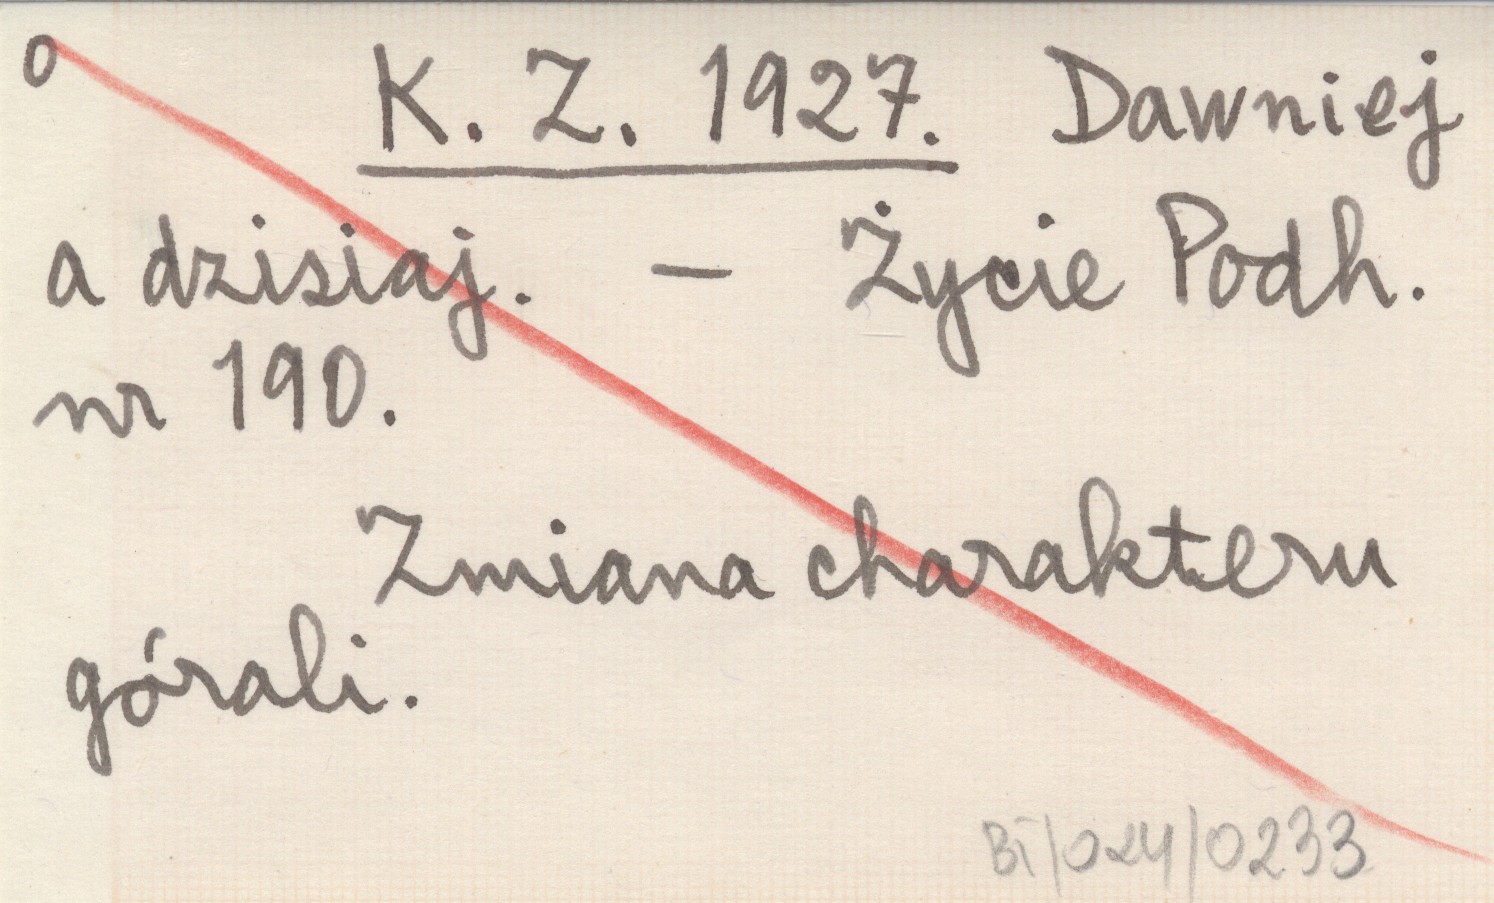 o K. Z. 1927. Dawniej
a dzisiaj. — Życie Podh.
nr 190.
Zmiana charakteru
górali.
BI/024/0233